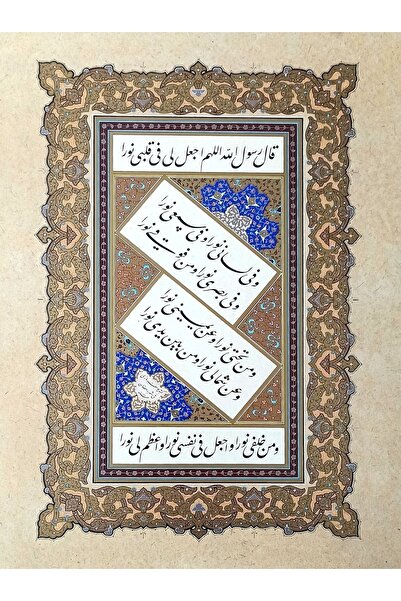 قال رسول الله اللهم اجعل لى فى قلبى نورا
وفى لسانى نورا وفى سمعى نورا
وفى بصرى نورا ومن فوقى نورا
ومن تحتى نورا وعن يمينى نورا
وعن شمالى نورا ومن بين يدى نورا
ومن خلفى نورا واجعل فى نفسى نورا واعظم لى نورا